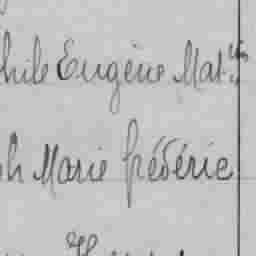 hile Eugène Mat.in
h Marie frédéric